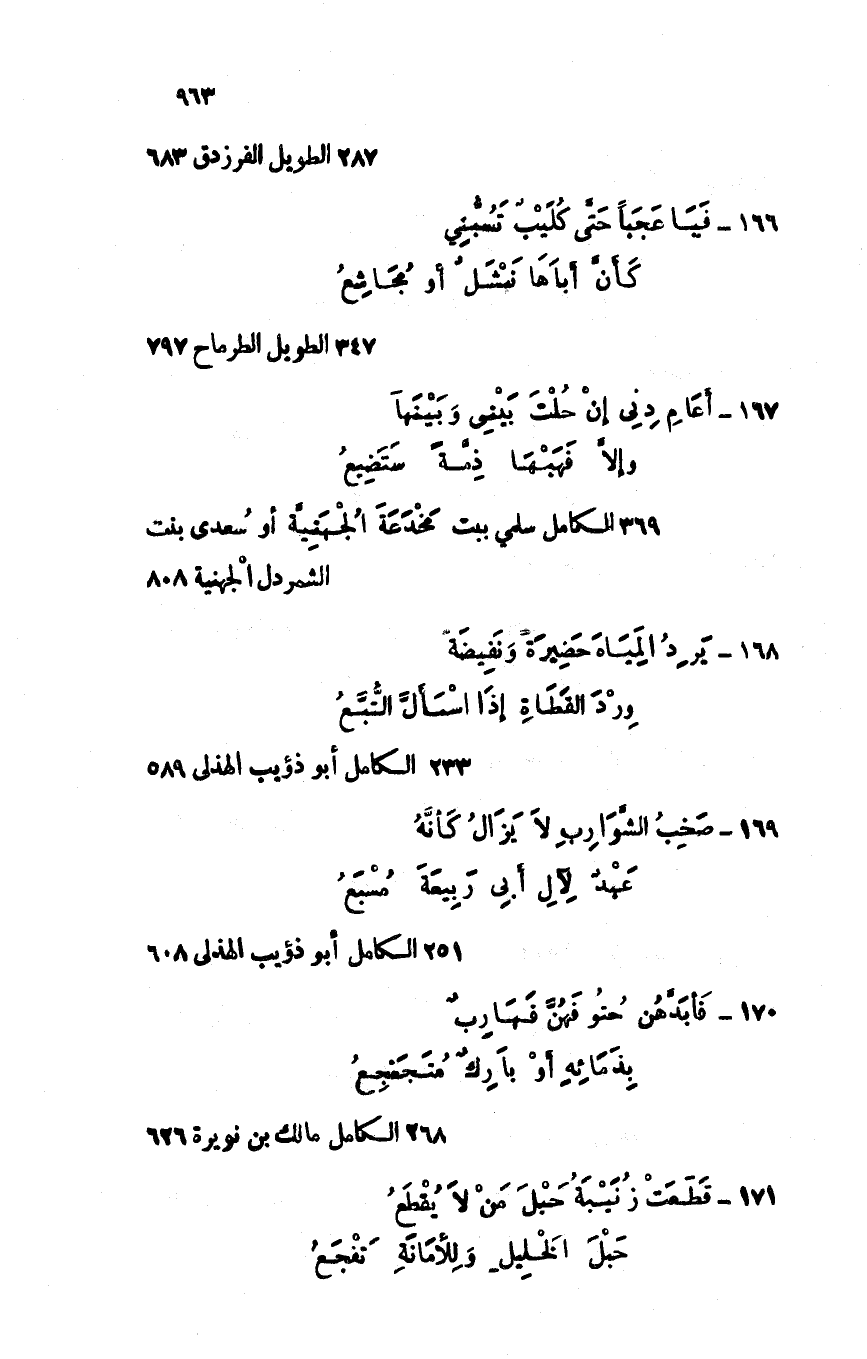 ٩٦٣
٢٨٧ الطويل الفرزدق ٦٨٣
١٦٦ - فَيَـا عَجَباً حَتَّى كُلَيْبٌ تَسُبُّنِي
كَـأَنَّ أَبـاَهَا نَهْشَـلٌ أو مُجَـاشِعُ
٣٤٧ الطويل الطرماح ٧٩٧
١٦٧ - أَعَامِ دِنِى إنْ حُلْتَ بَيْنِى وَبَيْنَهاَ
وإلاَّ فَهَبْهَـا ذِمَّـةً سَتَضِيعُ
٣٦٩ الكامل سلمي ببت مَخْدَعَةَ الْجُهَنِيَّة أو سُعدى بنت
الشمردل الْجهنية ٨٠٨
١٦٨ - يَرِدُ المِيَـاهَ حَضِيرَةً وَنَفِيضَةً
وِرْدَ القَطَاةِ إذَا اسْمَـأَلَّ التُّبَّعُ
٢٣٣ الكامل أبو ذؤيب الهذلى ٥٨٩
١٦٩ - صَخِبُ الشَّوَارِبِ لاَ يَزَالُ كَأنَّهُ
عَبْدٌ لِآلِ أبى رَبِيعَةَ مُسْبَعُ
٢٥١ الكامل أبو ذؤيب الهذلى ٦٠٨
١٧٠ - فَأبَدَّهُن حُتوُ فَهُنَّ فَـهَـارِبٌ
بِذَمَائِهِ أوْ بَارِكٌ مُتَـجَعْجِـعُ
٢٦٨ الكامل مالك بن نويرة ٦٢٦
١٧١ - قَطَّعَتْ زُنَيْبَةُ حَبْلَ مَنْ لاَ يُقْطَعُ
حَبْلَ الخَـلِيلِ وَلِلْأَمَانَةِ تَفْجَـعُ